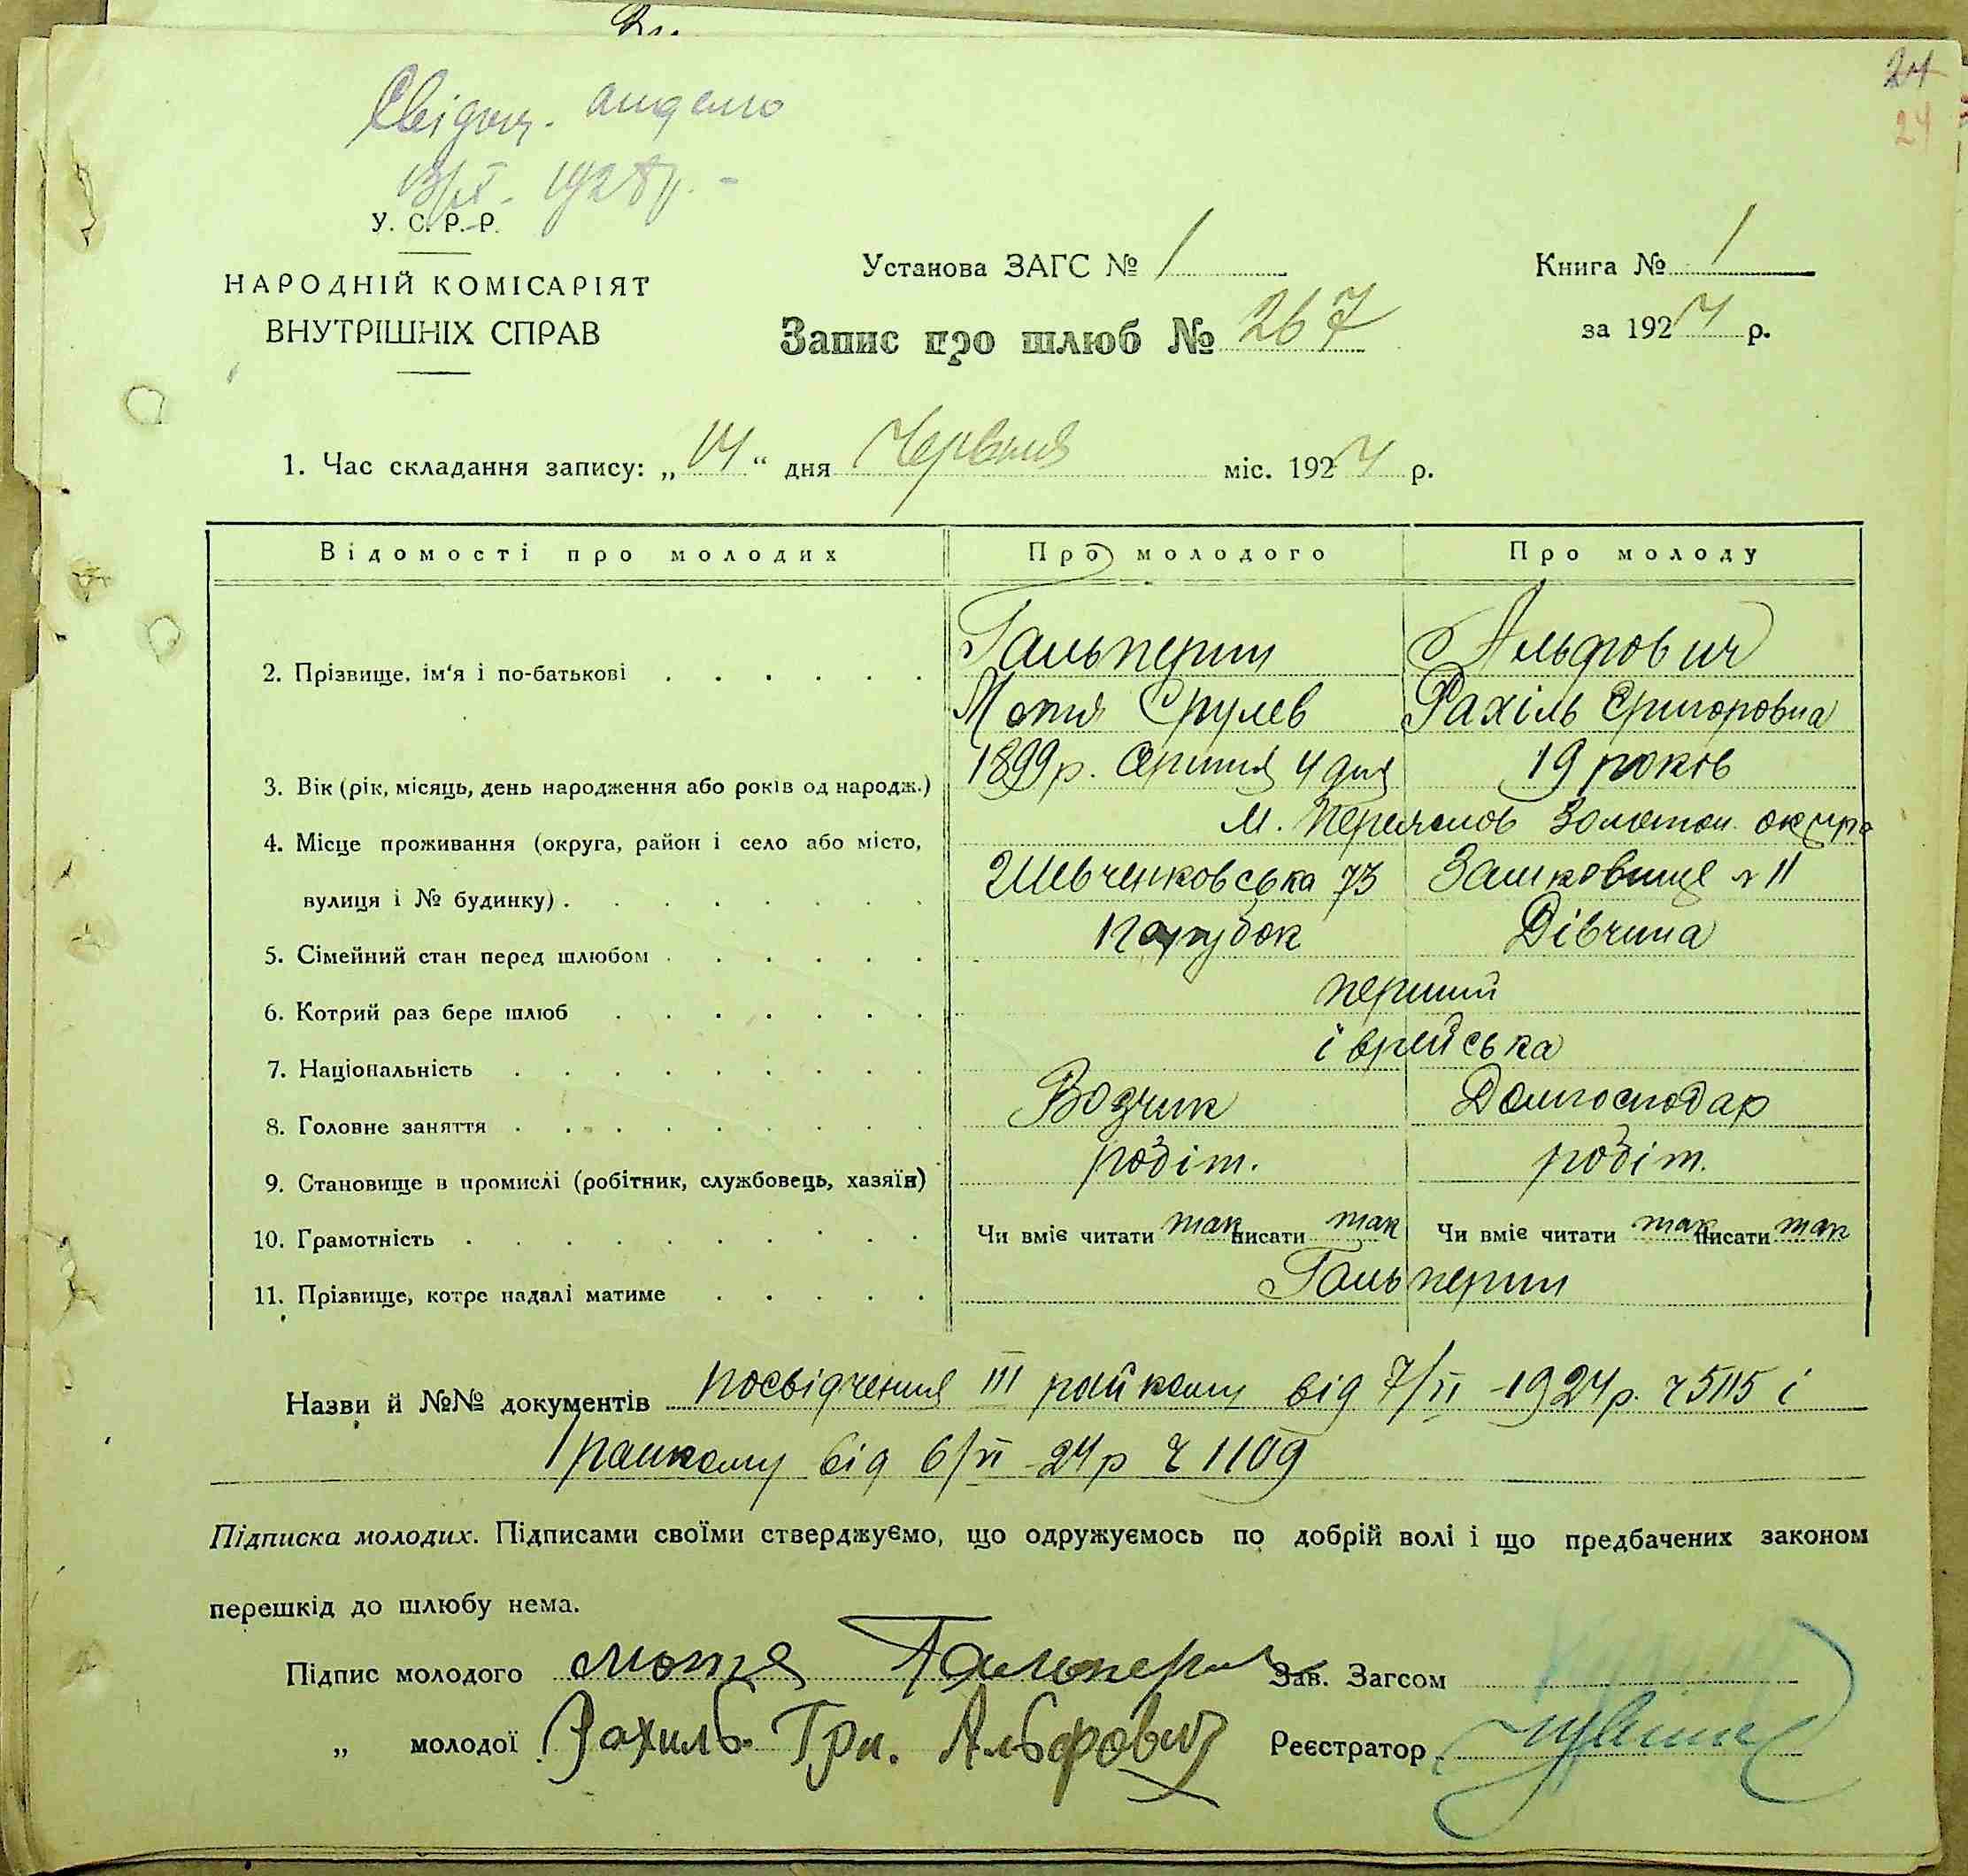 Свідоц. видано
13/ІХ - 1928 р. -
У. С. Р. Р.
НАРОДНІЙ КОМІСАРІЯТ
ВНУТРІШНІХ СПРАВ
24
24
Установа ЗАГС № 1
Книга № 1
Запис про шлюб № 267
за 1924 р.
1. Час складання запису: „14“ дня Червня міс. 1924 р.
Відомості про молодих Про молодого Про молоду
2. Прізвище, ім'я і по-батькові Гальперин Альфович
Мотя Срулев Рахіль Григоровна
3. Вік (рік, місяць, день народження або років од народж.) 1899 р. Серпня 4 дня 19 років
4. Місце проживання (округа, район і село або місто, м. Переяслов Золотон. округа
вулиця і № будинку) Шевченковська 73 № 11
5. Сімейний стан перед шлюбом Парубок Дівчина
6. Котрий раз бере шлюб перший
7. Національність іврейська
8. Головне заняття Возчик Домгосподар
9. Становище в промислі (робітник, службовець, хазяїн) робіт. робіт.
10. Грамотність Чи вміє читати так писати так Чи вміє читати так писати так
11. Прізвище, котре надалі матиме Гальперин
Назви й №№ документів посвідчення ІІІ райкому від 7/VI - 1924 р. ч 5115 і
райкому від 6/VI 24 р ч 1109
Підписка молодих. Підписами своїми стверджуємо, що одружуємось по добрій волі і що предбачених законом
перешкід до шлюбу нема.
Підпис молодого Мотя Гальперин Зав. Загсом
„ молодої Рахиль Гри. Альфович Реєстратор